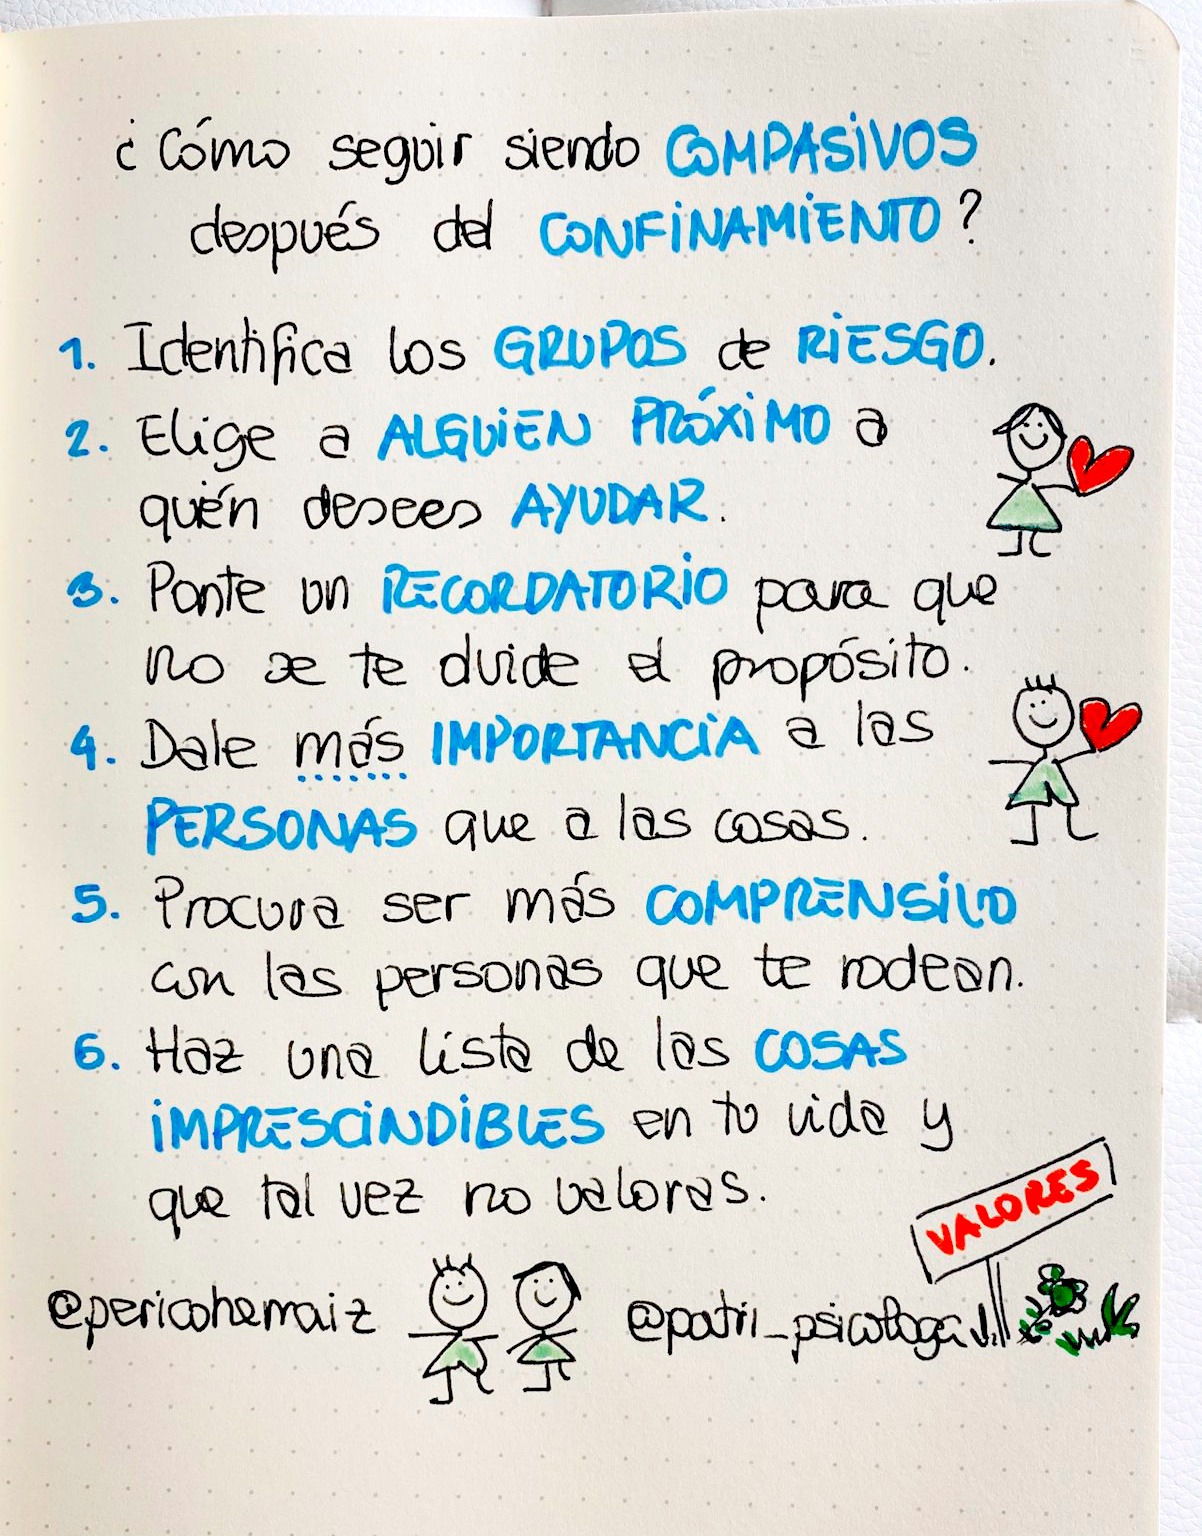 ¿Cómo seguir siendo COMPASiVOS
después del CONFiNAMiENTO?
1. Identifica los GRUPOS de RiESGO.
2. Elige a ALGUiEN PRÓXiMO a
quién desees AYUDAR.
3. Ponte un RECORDATORiO para que
no se te olvide el propósito.
4. Dale más IMPORTANCiA a las
PERSONAS que a las cosas.
5. Procura ser más COMPRENSiVO
con las personas que te rodean.
6. Haz una lista de las COSAS
iMPRESCiNDiBLES en tu vida y
que tal vez no valoras.
VALORES
@pericoherraiz @patri_psicologa